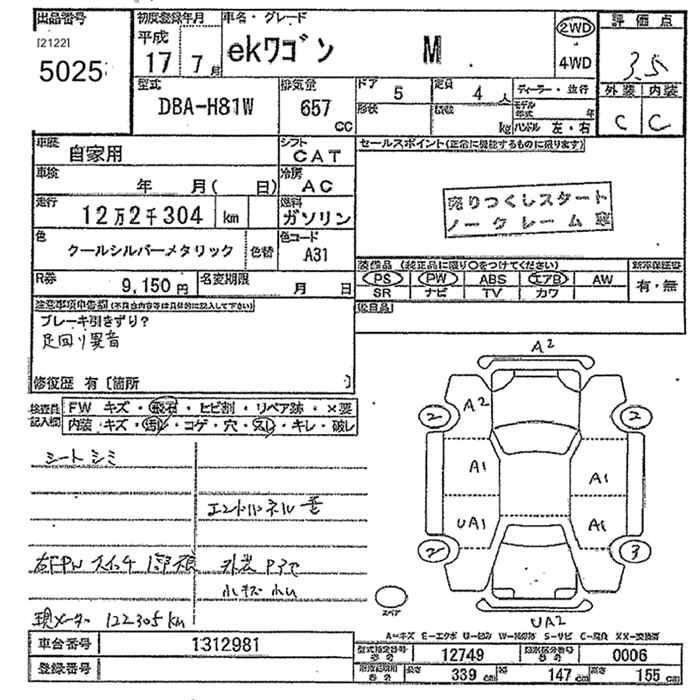 出品番号
[2122]
5025
初度登録年月
平成
17 7月
車名・グレード
ekワゴン M
2WD
4WD
評価点
3.5
外装 内装
C C
型式
DBA-H81W
排気量
657
CC
ドア 5
形状
定員 4人
積数 kg
ディーラー・並行
モデル年式 年
ハンドル 左・右
車歴
自家用
シフト
CAT
車検
年 月( 日)
冷房
AC
走行
12万2千304 km
燃料
ガソリン
色
クールシルバーメタリック
色替
色コード
A31
R券
9,150円
名変期限
月 日
セールスポイント(正常に機能するものに限ります)
売りつくしスタート
ノークレーム
装備品 (純正品に限り○をつけてください)
PS PW ABS エアB AW
SR ナビ TV カワ
新車保証書
有・無
後日品
注意事項申告欄(不具合内容等は具体的に記入して下さい)
ブレーキ引きずり?
足回り異音
修復歴 有〔箇所 〕
検査員記入欄
FW キズ・飛石・ヒビ割・リペア跡・×要
内装・キズ・汚れ・コゲ・穴・スレ・キレ・破レ
シートシミ
右FPWスイッチ
外装
小キズ
現メーター 122305km
A2
A2
2 2
A1 A1
UA1 A1
2 3
スペア
UA2
A-キズ E-エクボ U-凹み W-補修跡 S-サビ C-腐食 XX-交換済
車台番号 1312981
登録番号
型式指定番号 12749
類別区分番号 0006
長さ 339cm
幅 147cm
高さ 155cm